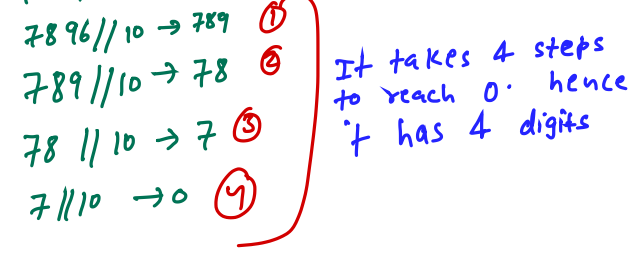 7896//10 → 789 ①
789//10 → 78 ②
78 // 10 → 7 ③
7//10 → 0 ④
It takes 4 steps
to reach 0. hence
it has 4 digits